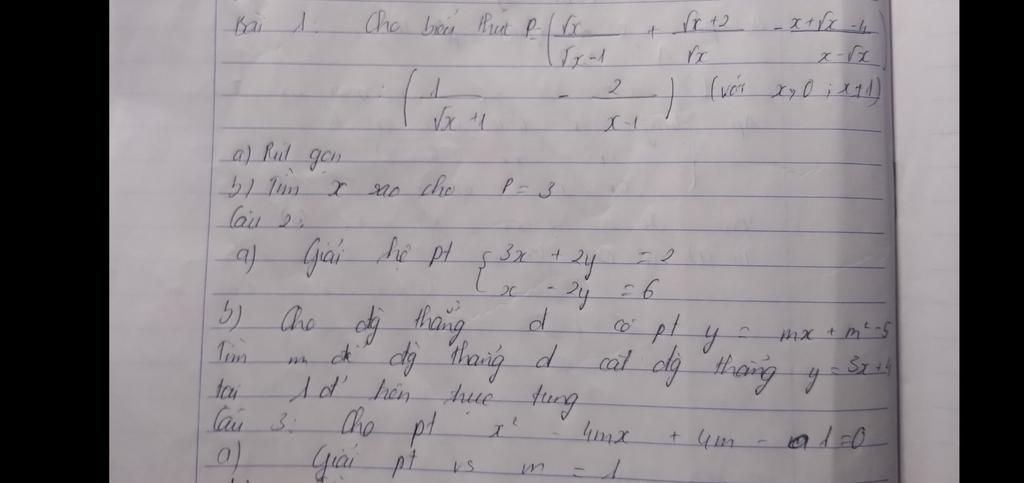 Bài 1: Cho biểu thức P = ( √x / (√x - 1) + (√x + 2) / √x - (x + √x - 4) / (x - √x) )
: ( 1 / (√x + 1) - 2 / (x - 1) ) (với x > 0 ; x ≠ 1)
a) Rút gọn
b) Tìm x sao cho P = 3
Câu 2:
a) Giải hệ pt { 3x + 2y = 2
x - 2y = 6
b) Cho đg thẳng d có pt y = mx + m² - 5
Tìm m để đg thẳng d cắt đg thẳng y = 3x + 4
tại 1 đ' trên trục tung
Câu 3: Cho pt x² - 4mx + 4m - 1 = 0
a) Giải pt vs m = 1